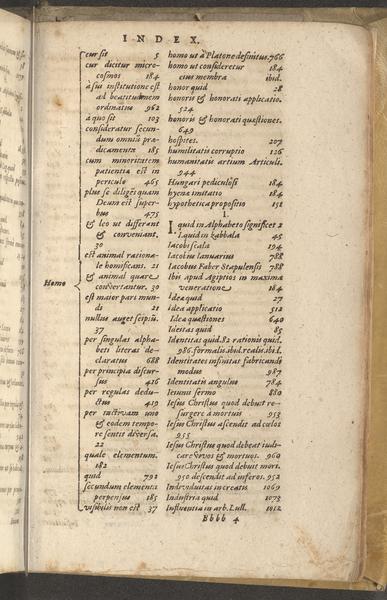 INDEX.
cur sit 5
cur dicitur micro-
cosmos 184
à sui institutione est
ad beatitudinem
ordinatus 962
à quo sit 103
consideratur secun-
dum omnia præ-
dicamenta 185
cum minoritatem
patientiæ est in
periculo 465
plus se diligés quam
Deum est super-
bus 475
& leo ut differant
& conveniant.
30
est animal rationa-
le homificans. 21
& animal quare
convertantur. 30
Homo
est maior pars mun-
di 21
nullus auget seipsũ.
37
per singulas alpha-
beti literas de-
claratus 688
per principia discur-
sus 416
per regulas dedu-
ctus 419
per instivam uno
& eodem tempo-
re sentit diversa.
22
quale elementum.
182
quid 792
secundum elementa
perpensus 185
visibilis non est 37
homo ut à Platone definitus. 766
homo ut consideretur 184
eius membra ibid.
honor quid 28
honoris & honorati applicatio.
524
honoris & honorati quæstiones.
649
hospites. 207
humilitatis corruptio 126
humanitatis artium Articuli.
944
Hungari pediculosi 184
hyena imitatio 184
hypothetica propositio 151
I.
I quid in Alphabeto significet 2
I. quid in kabbala 45
Iacobi scala 194
Iacobus Ianuarius 788
Iacobus Faber Stapulensis 788
Ibis apud Ægiptios in maxima
veneratione 184
Idea quid 27
Idea applicatio 512
Idea quæstiones 640
Ideitas quid 85
Identitas quid. 82 rationis quid.
986. formalis. ibid. realis. ibid.
Identitates infinitas fabricandi
modus 987
Identitatis angulus 784
Ieiunii sermo 880
Iesus Christus quod debuit re-
surgere à mortuis 953
Iesus Christus ascendit ad cœlos
955
Iesus Christus quod debeat iudi-
care vivos & mortuos. 960
Iesus Christus quod debuit mori.
950 descendit ad inferos. 952
Individuitas increatis 1069
Industria quid 1073
Influentia in arb. Lull. 1012
Bbbb 4